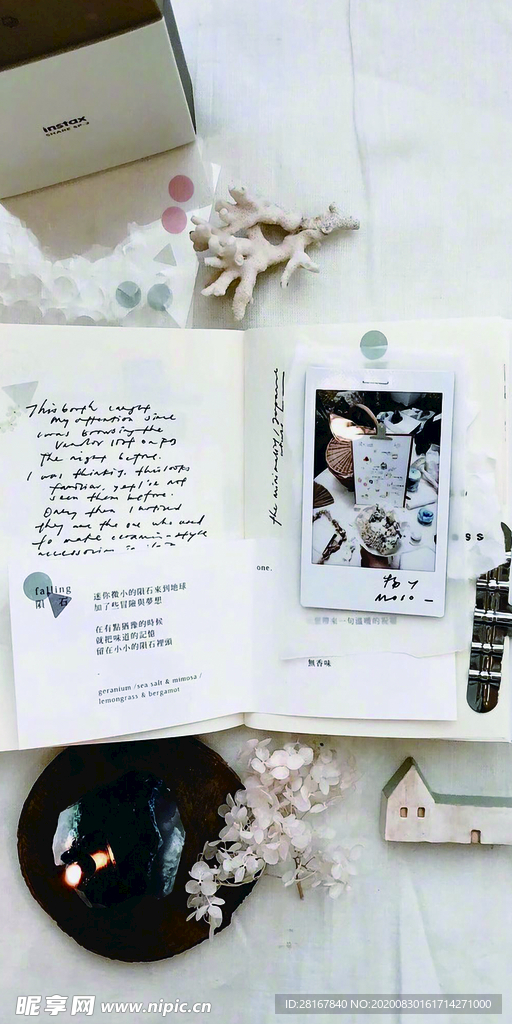 instax
SHARE SP-2
This booth caught
my attention since
I was browsing the
vendor list on PG
the night before.
I was thinking, this looks
familiar, yep I've not
seen them before.
Only then I noticed
they are the one who used
to make ceramic-style
accessories
falling
隕石
迷你微小的隕石來到地球
加了些冒險與夢想
在有點猶豫的時候
就把味道的記憶
留在小小的隕石裡頭
geranium /sea salt & mimosa /
lemongrass & bergamot
one.
ss
帶來一句溫暖的祝福
無香味
昵享网 www.nipic.cn
ID:28167840 NO:20200830161714271000